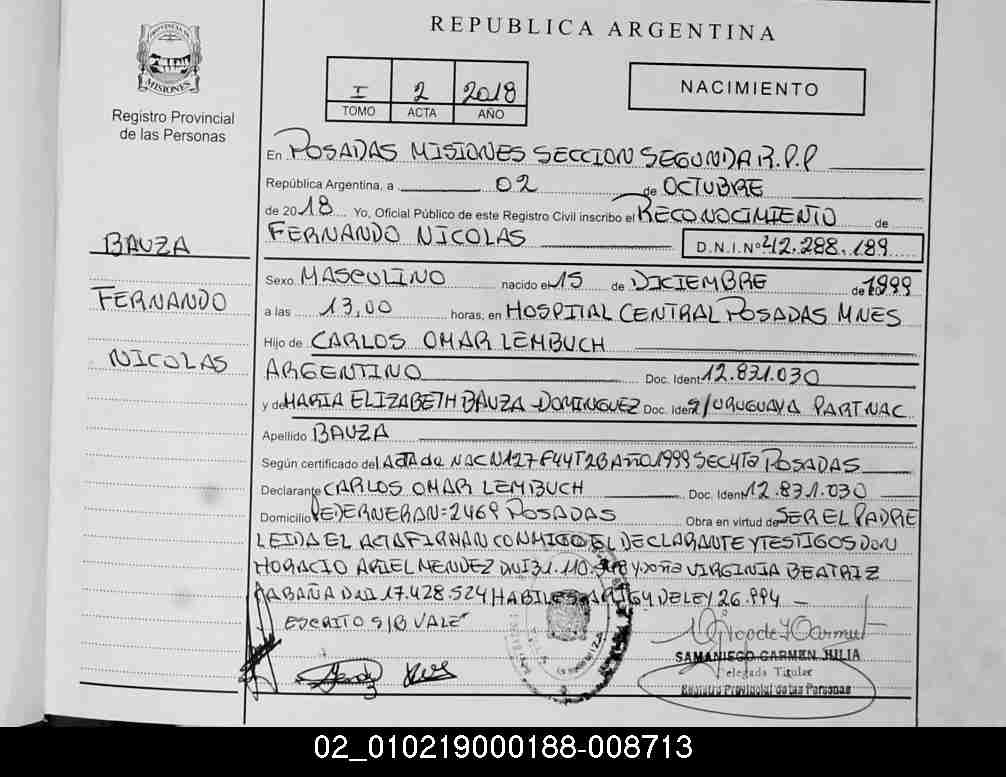 REPUBLICA ARGENTINA
PROVINCIA DE
MISIONES
Registro Provincial
de las Personas
I 2 2018
TOMO ACTA AÑO
NACIMIENTO
BAUZA
FERNANDO
NICOLAS
En POSADAS MISIONES SECCION SEGUNDA R.P.P
República Argentina, a 02 de OCTUBRE
de 2018 Yo, Oficial Público de este Registro Civil inscribo el RECONOCIMIENTO de
FERNANDO NICOLAS D.N.I.Nº 42.288.189
Sexo MASCULINO nacido el 15 de DICIEMBRE de 1999
a las 13,00 horas, en HOSPITAL CENTRAL POSADAS MNES
Hijo de CARLOS OMAR LEMBUCH
ARGENTINO Doc. Ident 12.831.030
y de MARIA ELIZABETH BAUZA DOMINGUEZ Doc. Ident URUGUAYA PART NAC
Apellido BAUZA
Según certificado del ACTA de NAC N127 F44 T2B AÑO 1999 SEC 4ta POSADAS
Declarante CARLOS OMAR LEMBUCH Doc. Ident 12.831.030
Domicilio PEDERNERA N=2469 POSADAS Obra en virtud de SER EL PADRE
LEIDA EL ACTA FIRMAN CONMIGO EL DECLARANTE Y TESTIGOS DON
HORACIO ARIEL MENDEZ DNI 31.110. Y DOÑA VIRGINIA BEATRIZ
DNI 17.428.524 HABILES DE LEY 26.994
ESCRITO S/B VALE
SAMANIEGO CARMEN JULIA
Delegada Titular
Registro Provincial de las Personas
02_010219000188-008713